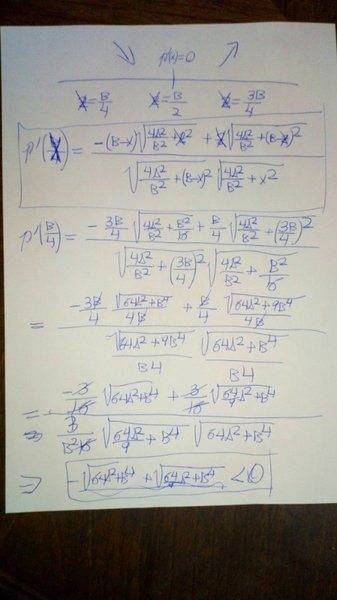 ↘ p'(x)=0 ↗
x=B/4 x=B/2 x=3B/4
p'(x) = (-(B-x)√(4A²/B² + x²) + x√(4A²/B² + (B-x)²)) / (√(4A²/B² + (B-x)²) √(4A²/B² + x²))
p'(B/4) = (-3B/4 √(4A²/B² + B²/16) + B/4 √(4A²/B² + (3B/4)²)) / (√(4A²/B² + (3B/4)²) √(4A²/B² + B²/16))
= (-3B/4 √(64A²+B⁴)/4B + B/4 √(64A²+9B⁴)/4B) / (√(64A²+9B⁴)/B4 √(64A²+B⁴)/B4)
= (-3/16 √(64A²+B⁴) + 3/16 √(64A²/9+B⁴)) /
⇒ 3/B²16 √(64A²/9 + B⁴) √(64A²+B⁴)
⇒ -√(64A²+B⁴) + √(64A²/9+B⁴) < 0